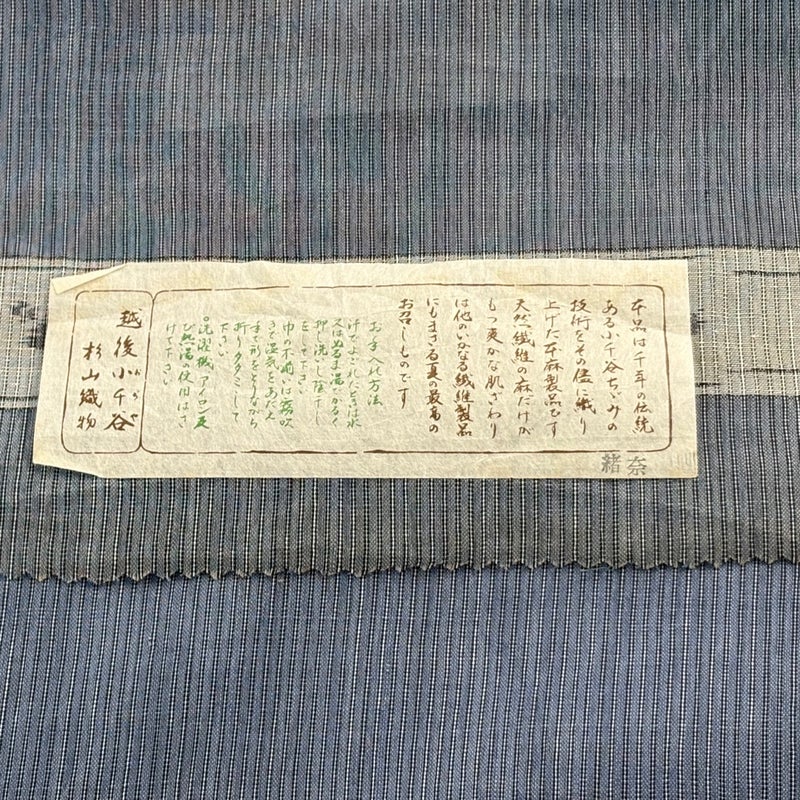 本品は千年の伝統
ある小千谷ちゞみの
技術をその儘に織り
上げた本麻製品です
天然繊維の麻だけが
もつ爽かな肌ざわり
は他のいかなる繊維製品
にもまさる夏の最高の
お召しものです
お手入れ方法
汗でよごれたときは水
又はぬるま湯でかるく
押し洗い陰干し
をして下さい
巾の不揃いは霧吹
きで湿気をあたえ
手で形をとりながら
折りタタミして
下さい
◦洗濯機アイロン及
び熱湯の使用はさ
けて下さい
越後小千谷
おぢや
杉山織物
緒奈